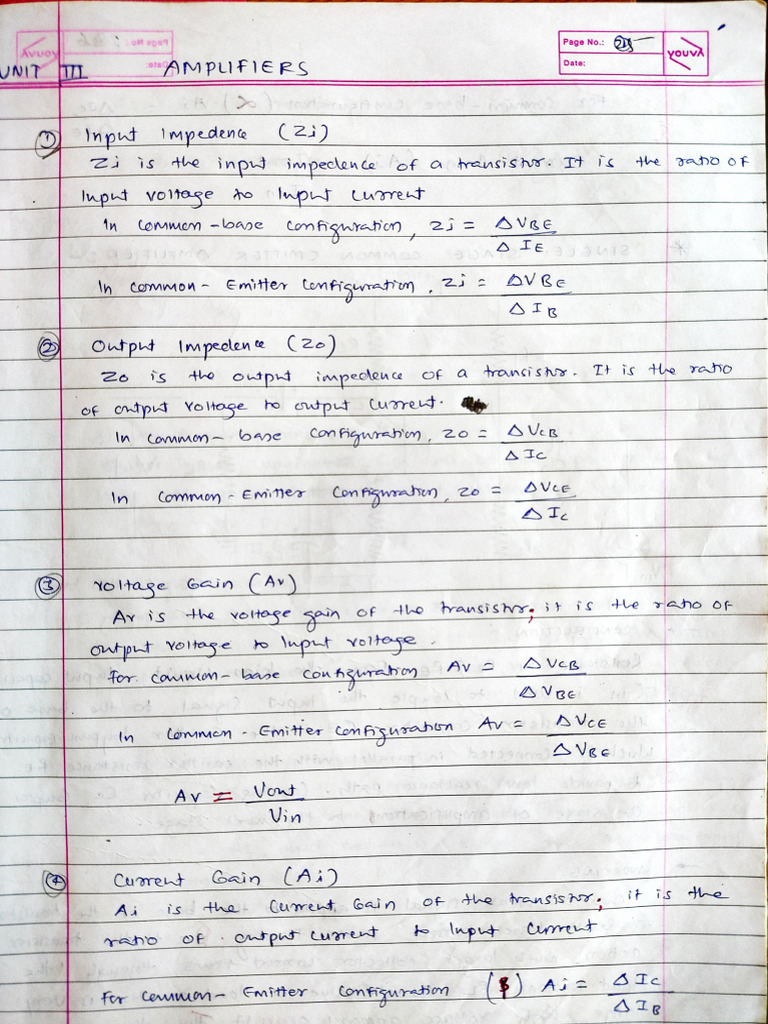 Page No.:
Date:
YOUVA
UNIT III AMPLIFIERS
① Input Impedence (Zi)
Zi is the input impedence of a transistor. It is the ratio of
Input voltage to Input current
In common-base configuration, Zi = ΔVBE / ΔIE
In common-Emitter configuration, Zi = ΔVBE / ΔIB
② Output Impedence (Zo)
Zo is the output impedence of a transistor. It is the ratio
of output voltage to output current.
In common-base configuration, Zo = ΔVCB / ΔIC
In common-Emitter configuration, Zo = ΔVCE / ΔIC
③ Voltage Gain (Av)
Av is the voltage gain of the transistor; it is the ratio of
output voltage to Input voltage.
For common-base configuration Av = ΔVCB / ΔVBE
In common-Emitter configuration Av = ΔVCE / ΔVBE
Av = Vout / Vin
④ Current Gain (Ai)
Ai is the current Gain of the transistor; it is the
ratio of output current to Input current
For common-Emitter configuration (β) Ai = ΔIC / ΔIB